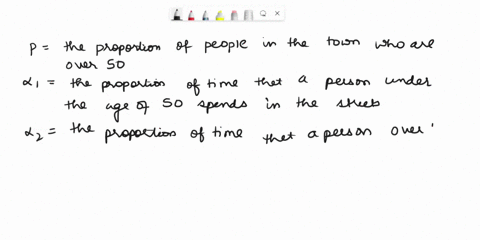 P = the proportion of people in the town who are
over 50
α1 = the proportion of time that a person under
the age of 50 spends in the streets
α2 = the proportion of time that a person over